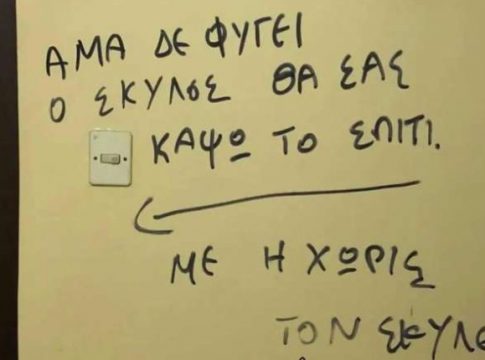 ΑΜΑ ΔΕ ΦΥΓΕΙ
Ο ΣΚΥΛΟΣ ΘΑ ΣΑΣ
ΚΑΨΩ ΤΟ ΣΠΙΤΙ.
ΜΕ Η ΧΩΡΙΣ
ΤΟΝ